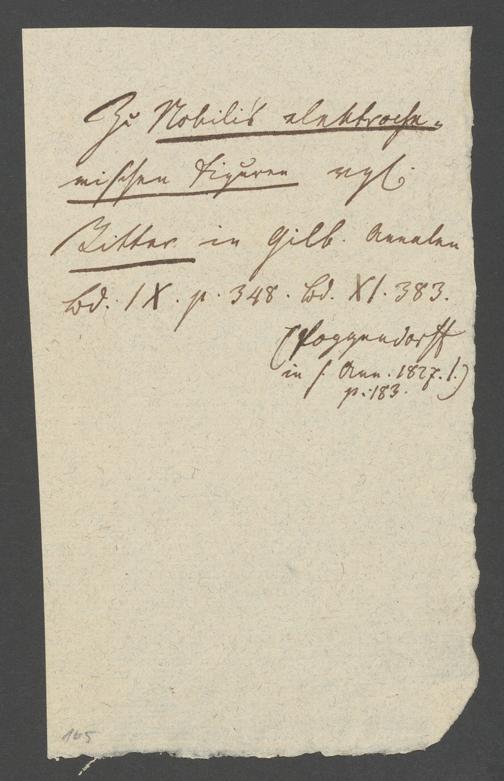 Zu Nobili's elektroche-
mischen Figuren vgl.
Ritter in Gilb. Annalen
Bd. IX. p. 348. Bd. XI. 383.
(Poggendorff
in s. Ann. 1827. I.)
p. 183.
165